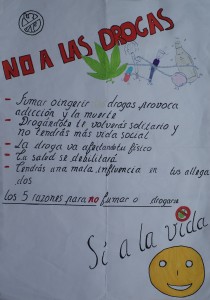 NO A LAS DROGAS
- Fumar o ingerir drogas provoca
adicción y la muerte
- Drogándote te volverás solitario y
no tendrás más vida social
- La droga va afectandotu físico
- La salud se debilitará
- Tendrás una mala influencia en tus allega
dos
Los 5 razones para no fumar o drogarse
Sí a la vida